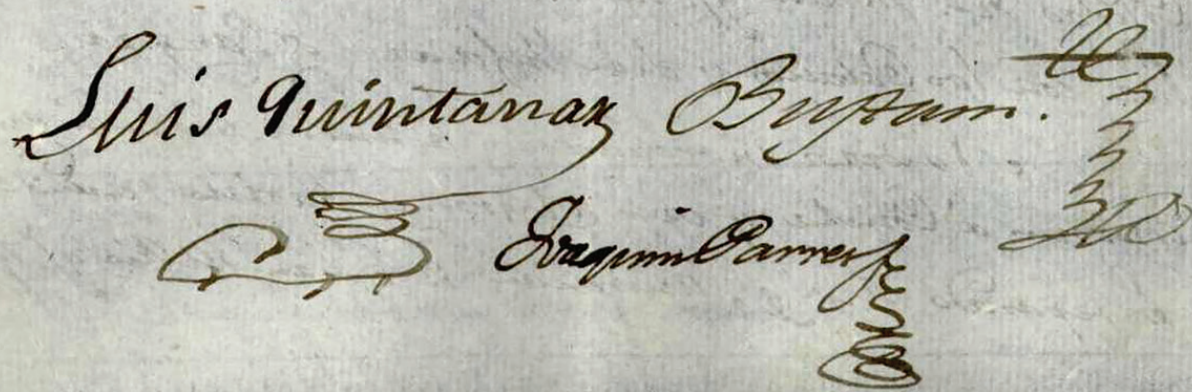 Luis Quintanar Bustam.te
Joaquin Parres